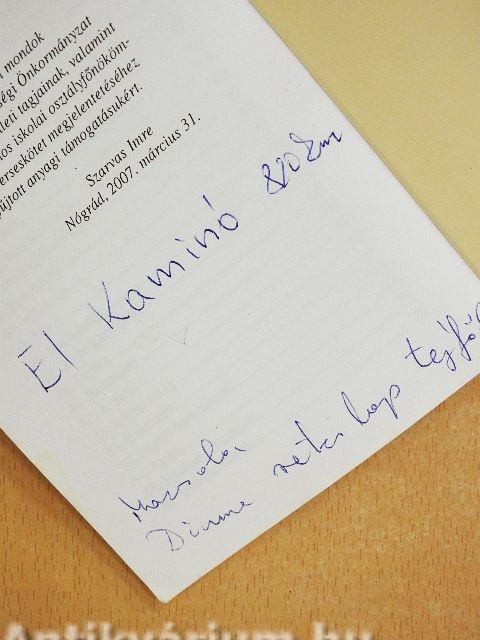 i mondok
ségi Önkormányzat
leti tagjainak, valamint
os iskolai osztályfőnököm-
erseskötet megjelentetéséhez
yújtott anyagi támogatásukért.
Szarvas Imre
Nógrád, 2007. március 31.
El Kaminó 820 km
tejfö
Antikvárium.hu